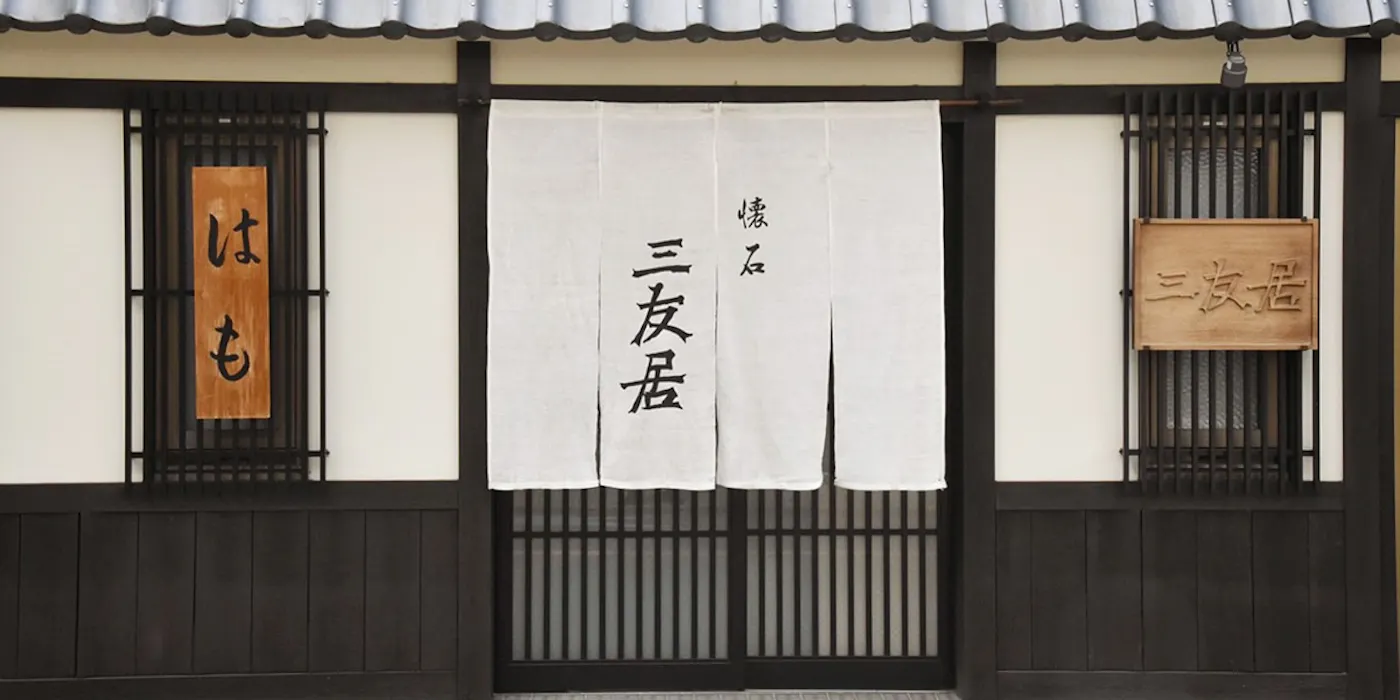 はも
懐石
三友居
三友居